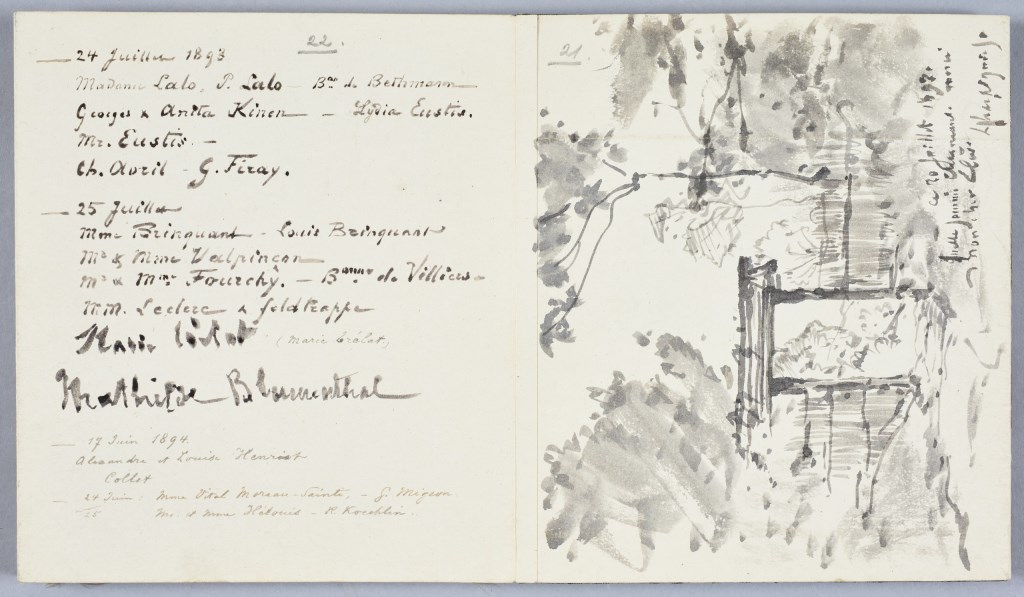 22.
— 24 Juillet 1893
Madame Lalo, P. Lalo — Bne de Bethmann
Georges & Anita Kinen — Lydia Eustis.
Mr. Eustis. —
Ch. Avril - G. Firay.
— 25 Juillet
Mme Brinquant - Louis Brinquant
Mr & Mme Valpinçon
Mr & Mme Fourchÿ. — Bonne de Villiers
M.M. Leclerc & feldtrappe
Marie Crélat (Marie Crélat)
Mathilde Blumenthal
— 17 Juin 1894.
Alexandre et Louise Henriot
Collot
— 24 Juin: Mme Vital Moreau-Sainti, — G. Migeon
25 Mr. et Mme Helouis - R. Koechlin.
21.
ce 20 Juillet 1893.
mon cher